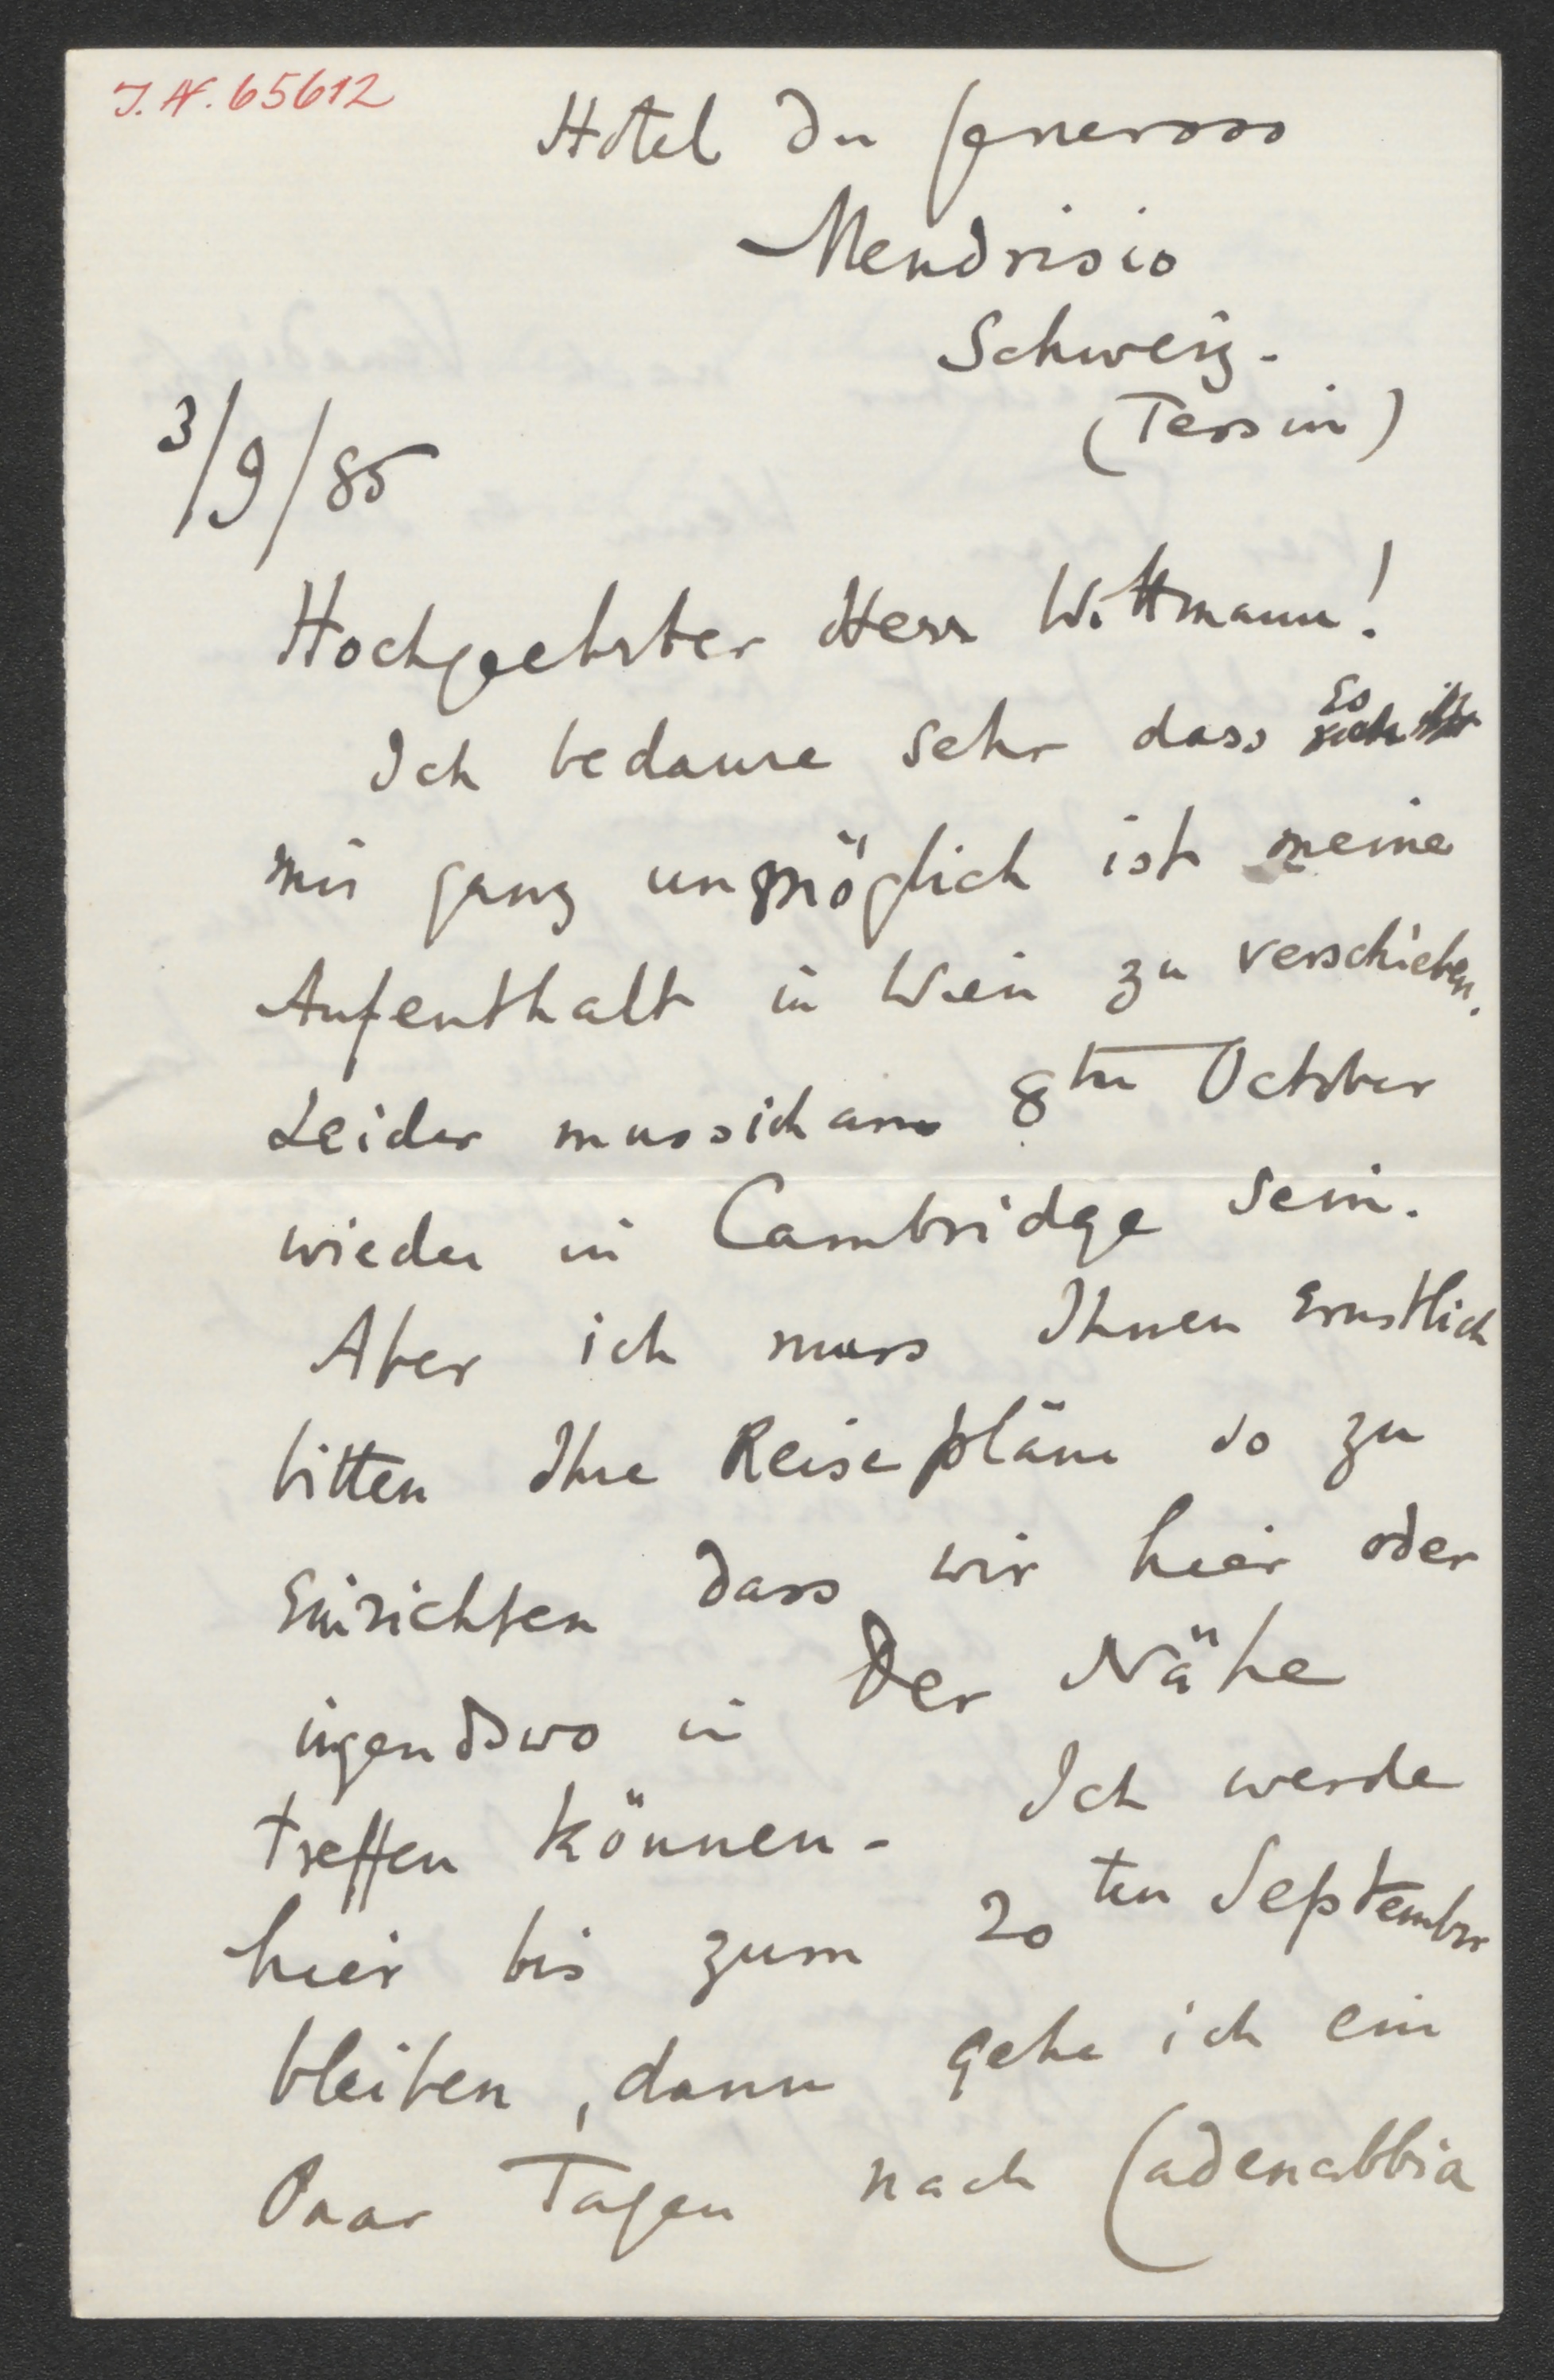 J. N. 65612
Hotel du Generoso
Mendrisio
Schweiz.
(Tessin)
3/9/85
Hochgeehrter Herr Wittmann!
Ich bedaure sehr dass es
mir ganz unmöglich ist meine
Aufenthalt in Wien zu verschieben.
Leider muss ich am 8ten October
wieder in Cambridge sein.
Aber ich muss Ihnen ernstlich
bitten Ihre Reisepläne so zu
einrichten dass wir hier oder
irgendswo in der Nähe
treffen können. Ich werde
hier bis zum 20ten September
bleiben, dann gehe ich ein
Paar Tagen nach Cadenabbia